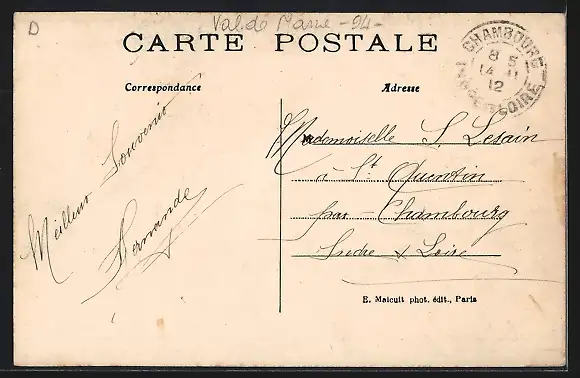 D
Val-de-Marne - 94 -
CARTE POSTALE
Correspondance
Adresse
CHAMBOURG
8 5
14 11
12
INDRE-ET-LOIRE
Meilleur Souvenir
Fernande
Mademoiselle S. Lesain
à St Quentin
par Chambourg
Indre & Loire
E. Malcuit phot. édit., Paris